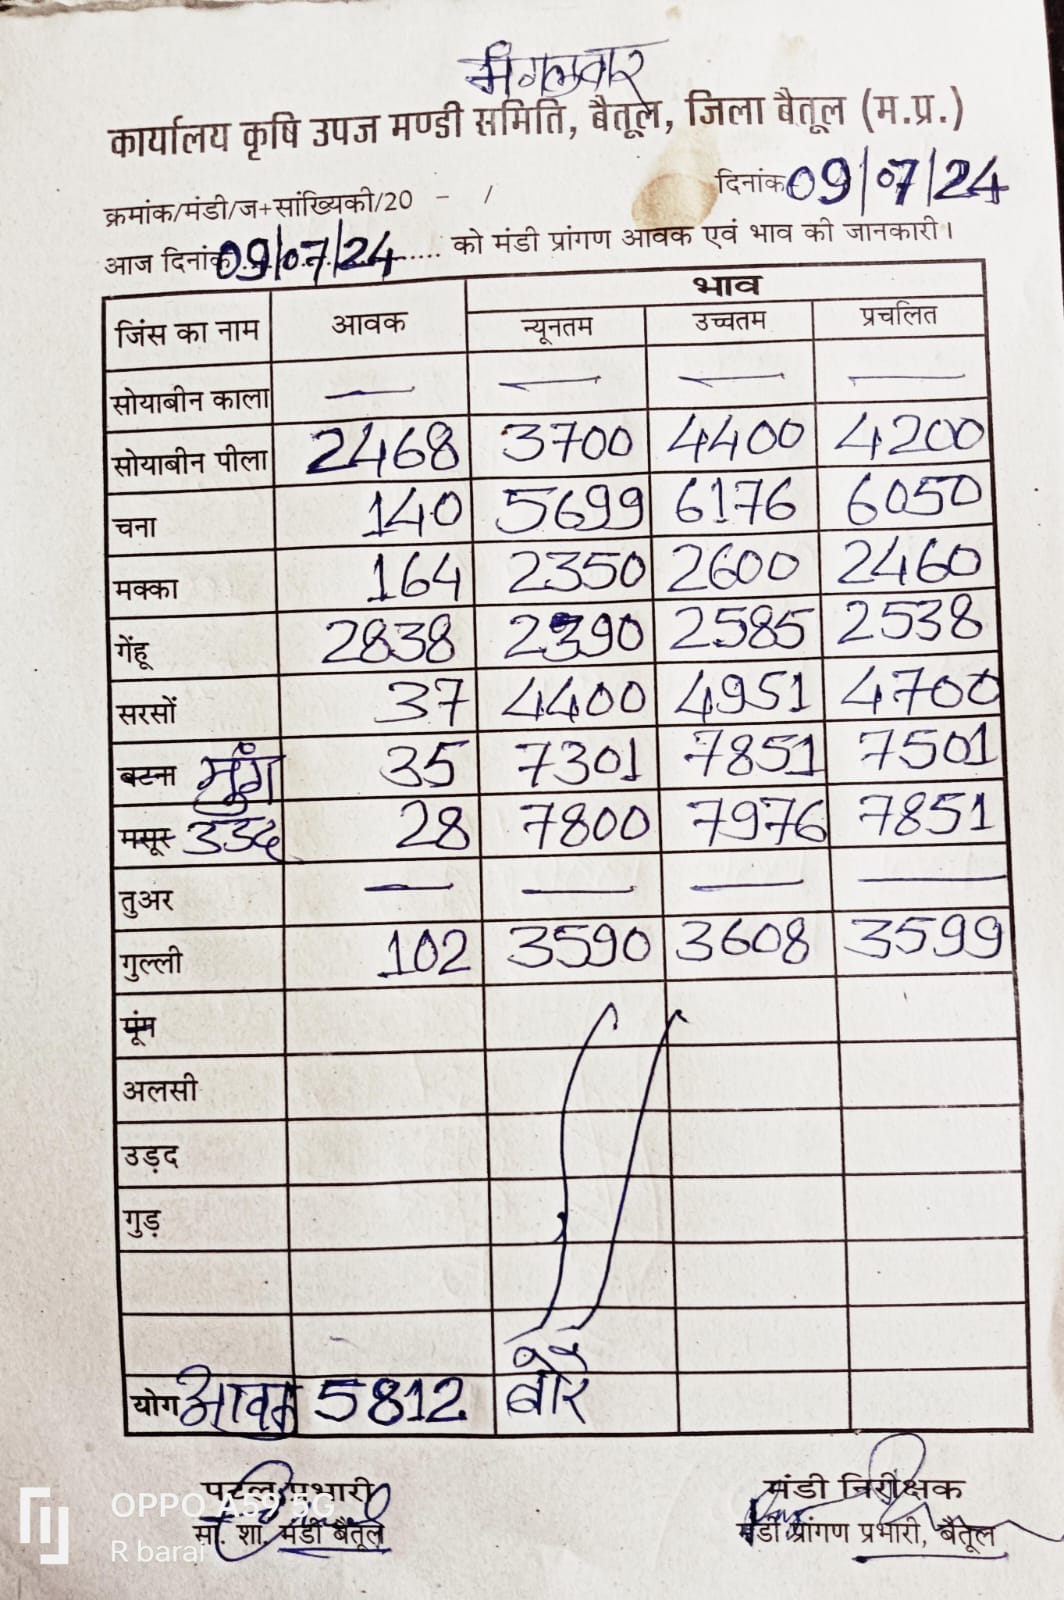 मंगलवार
कार्यालय कृषि उपज मण्डी समिति, बैतूल, जिला बैतूल (म.प्र.)
क्रमांक/मंडी/ज+सांख्यिकी/20 - / दिनांक 09/07/24
आज दिनांक 09/07/24 ...... को मंडी प्रांगण आवक एवं भाव की जानकारी।
जिंस का नाम आवक भाव
न्यूनतम उच्चतम प्रचलित
सोयाबीन काला — — — —
सोयाबीन पीला 2468 3700 4400 4200
चना 140 5699 6176 6050
मक्का 164 2350 2600 2460
गेंहू 2838 2390 2585 2538
सरसों 37 4400 4951 4700
बटना मुंग 35 7301 7851 7501
मसूर उडद 28 7800 7976 7851
तुअर — — — —
गुल्ली 102 3590 3608 3599
मूंग
अलसी
उड़द
गुड़
योग आवक 5812 बोरे
प्रभारी मंडी निरीक्षक
सां. शा. मंडी बैतूल मंडी प्रांगण प्रभारी, बैतूल
OPPO A59 5G
R barai